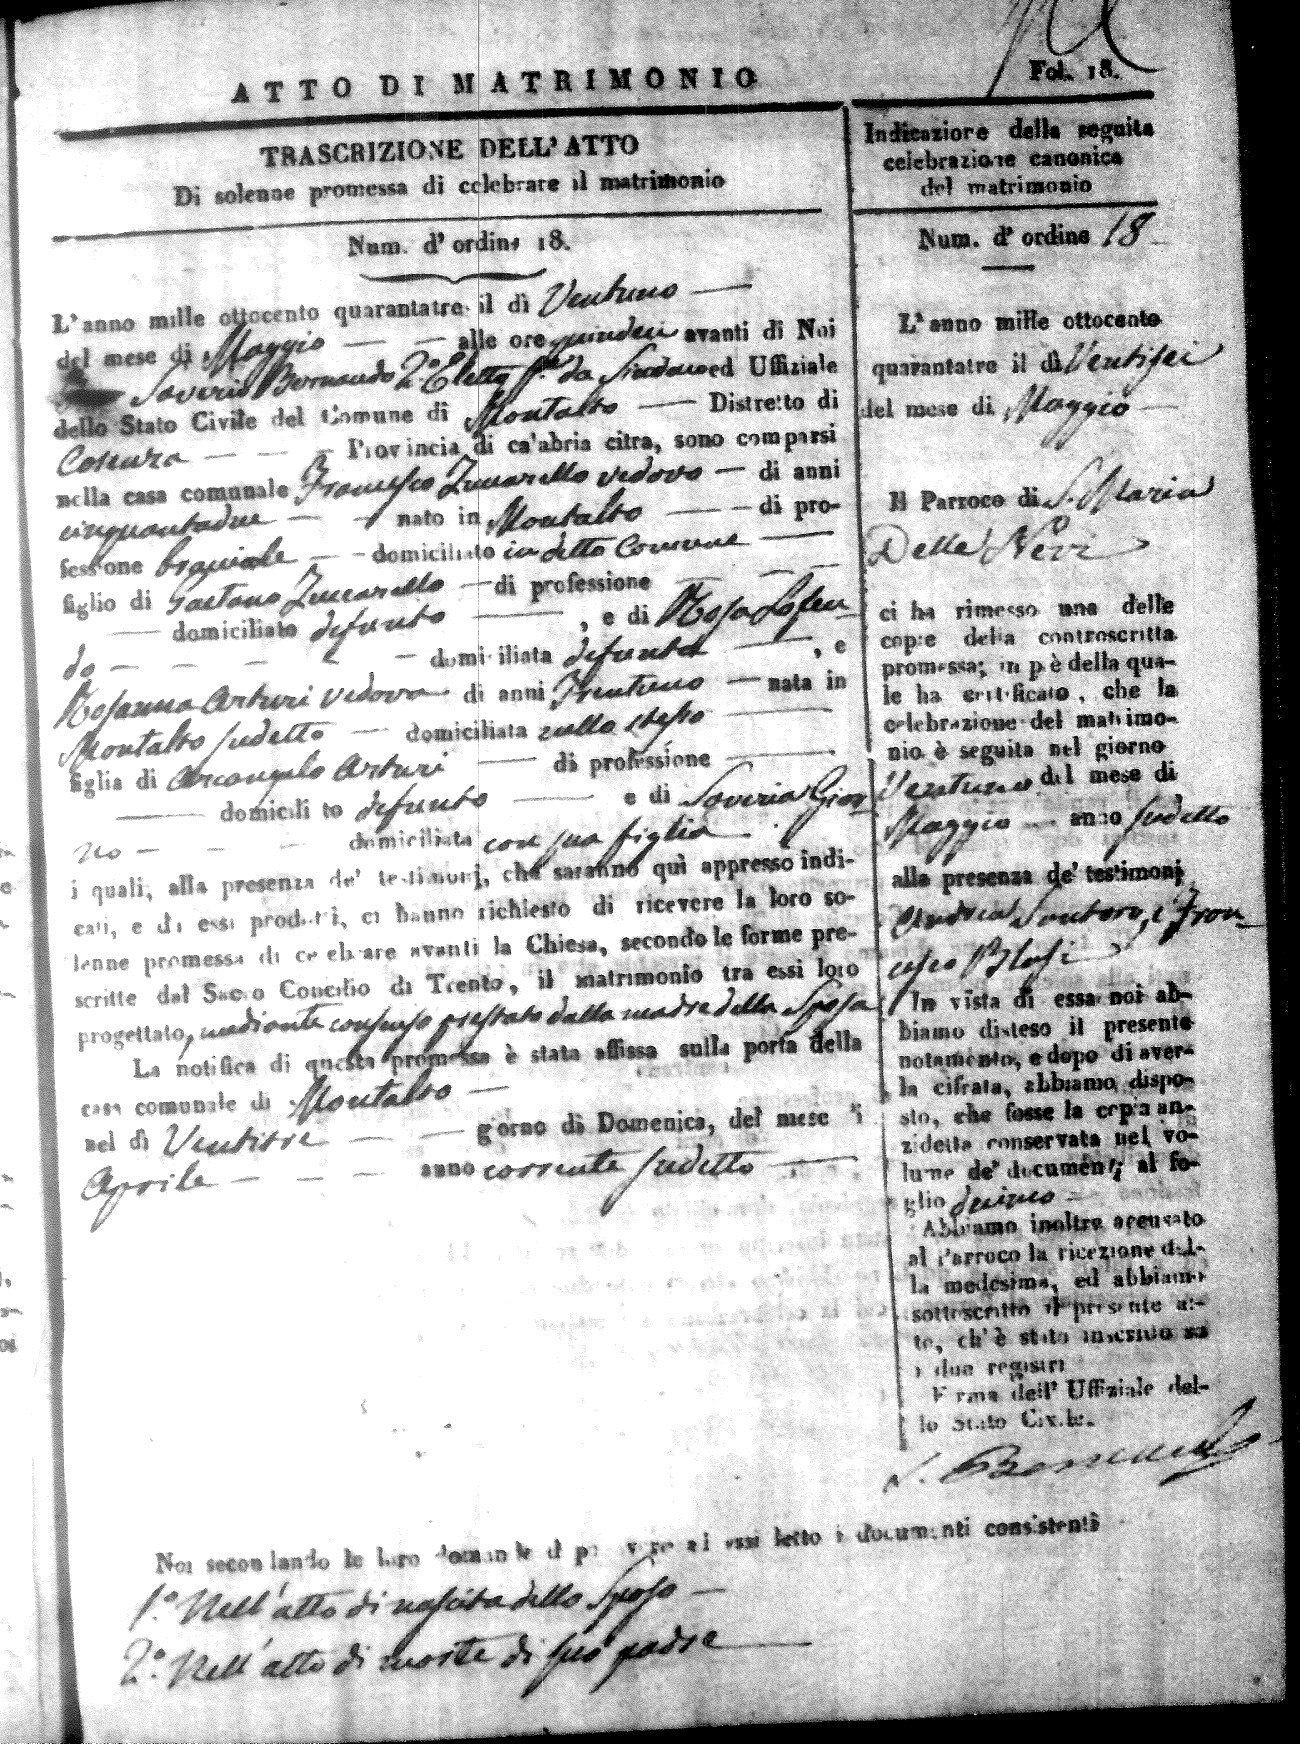 Fol. 18.
ATTO DI MATRIMONIO
TRASCRIZIONE DELL'ATTO
Di solenne promessa di celebrare il matrimonio
Num. d'ordine 18.
L'anno mille ottocento quarantatre il dì Ventuno
del mese di Maggio alle ore quindeci avanti di Noi
Saverio Bernaudo 2.° Eletto da Sindaco ed Uffiziale
dello Stato Civile del Comune di Montalto Distretto di
Cosenza Provincia di ca'abria citra, sono comparsi
nella casa comunale Francesco Zuccarello vedovo di anni
cinquantadue nato in Montalto di pro-
fessione bracciale domiciliato in detto Comune
figlio di Gaetano Zuccarello di professione
domiciliato defunto , e di Rosa
do domiciliata defunta , e
Rosanna Arturi vedova di anni Trentuno nata in
Montalto sudetto domiciliata nello stesso
figlia di Arcangelo Arturi di professione
domicili to defunto e di Saveria Gior
no domiciliata con sua figlia
i quali, alla presenza de' testimonj, che saranno quì appresso indi-
cati, e di essi prodotti, ci hanno richiesto di ricevere la loro so-
lenne promessa di celebrare avanti la Chiesa, secondo le forme pre-
scritte dal Sacro Concilio di Trento, il matrimonio tra essi loro
progettato, mediante consenso prestato dalla madre della Sposa
La notifica di questa promessa è stata affissa sulla porta della
casa comunale di Montalto
nel dì Ventitre giorno di Domenica, del mese di
Aprile anno corrente sudetto
Noi secondando le loro domande letto i documenti consistenti
1.° Nell'atto di nascita dello Sposo
2.° Nell'atto di morte di suo padre
Indicazione della seguita
celebrazione canonica
del matrimonio
Num. d'ordine 18
L'anno mille ottocento
quarantatre il dì Ventisei
del mese di Maggio
Il Parroco di S. Maria
Delle Nevi
ci ha rimesso una delle
copie della controscritta
promessa; in piè della qua-
le ha certificato, che la
celebrazione del matrimo-
nio è seguita nel giorno
Ventuno del mese di
Maggio anno sudetto
alla presenza de' testimonj
Andrea Santoro, e Fran
cesco Blasi
In vista di essa noi ab-
biamo disteso il presente
notamento, e dopo di aver-
la cifrata, abbiamo dispo-
sto, che fosse la copia an-
zidetta conservata nel vo-
lume de' documenti al fo-
glio
Abbiamo inoltre accusato
al Parroco la ricezione del-
la medesima, ed abbiamo
sottoscritto il presente at-
to, ch'è stato inscritto su
i due registri
Firma dell' Uffiziale del-
lo Stato Civile.
S. Bernaudo